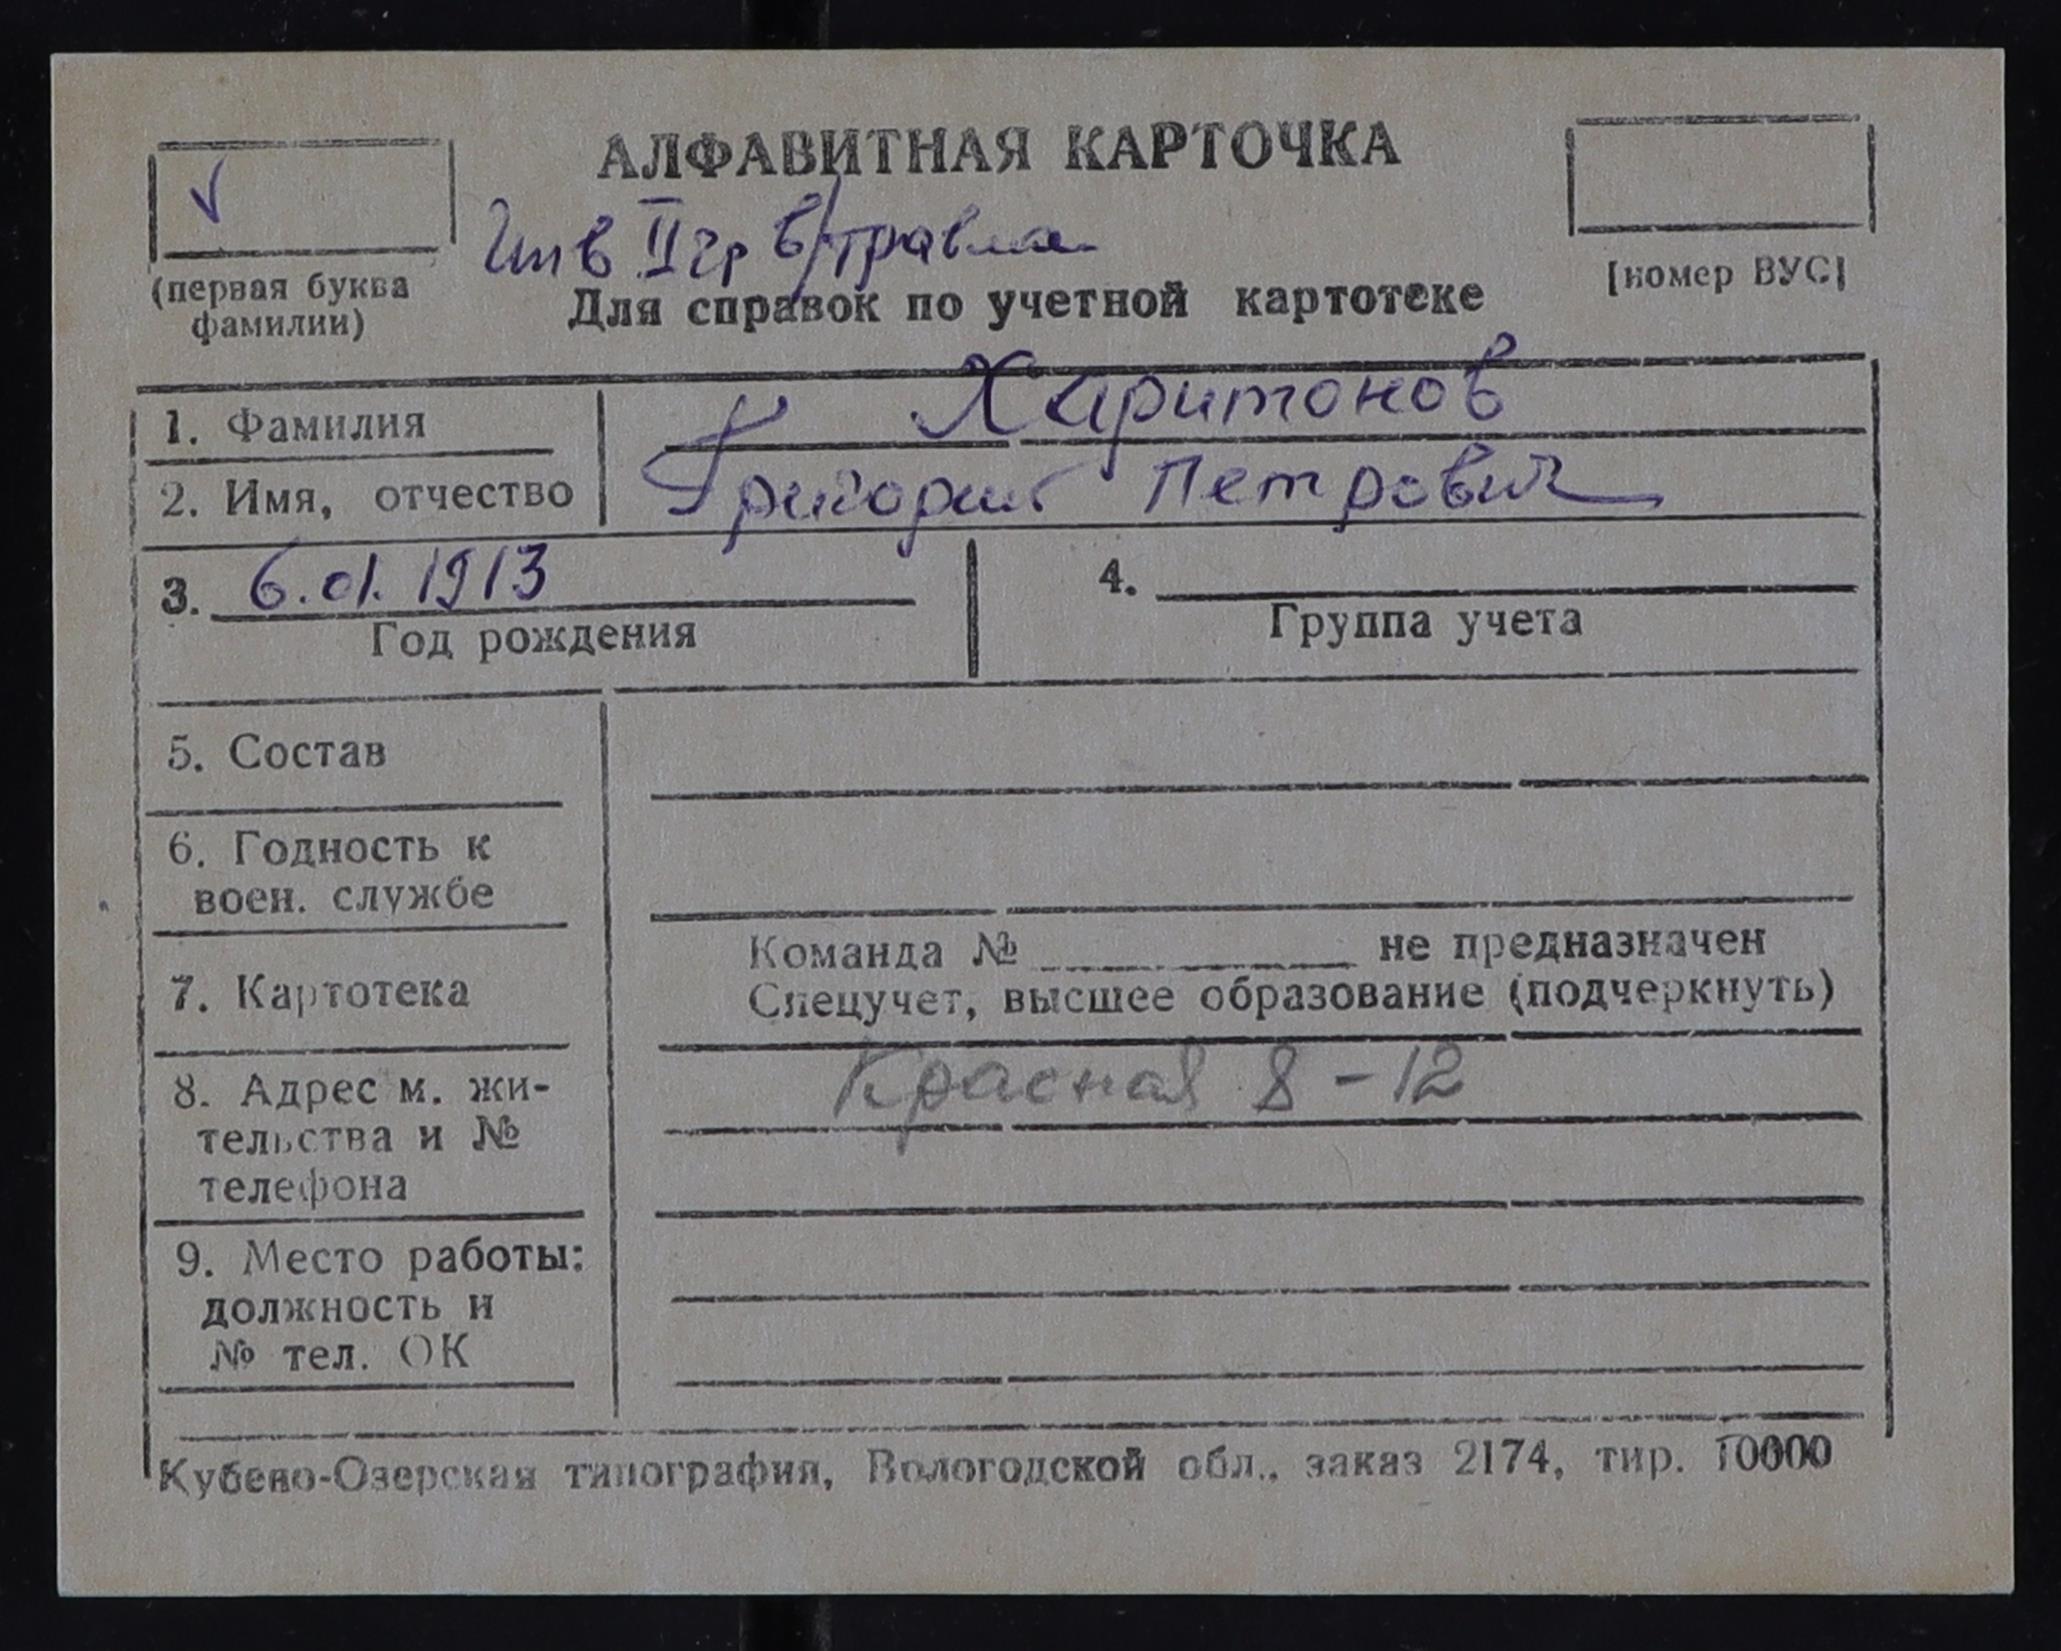 АЛФАВИТНАЯ КАРТОЧКА
Инв II гр в/травма
(первая буква
фамилии)
[номер ВУС]
Для справок по учетной картотеке
1. Фамилия Харитонов
2. Имя, отчество Григорий Петрович
3. 6.01.1913
Год рождения
4.
Группа учета
5. Состав
6. Годность к
воен. службе
7. Картотека
Команда № не предназначен
Спецучет, высшее образование (подчеркнуть)
8. Адрес м. жи-
тельства и №
телефона
Красная 8-12
9. Место работы:
должность и
№ тел. ОК
Кубено-Озерская типография, Вологодской обл., заказ 2174, тир. 10000